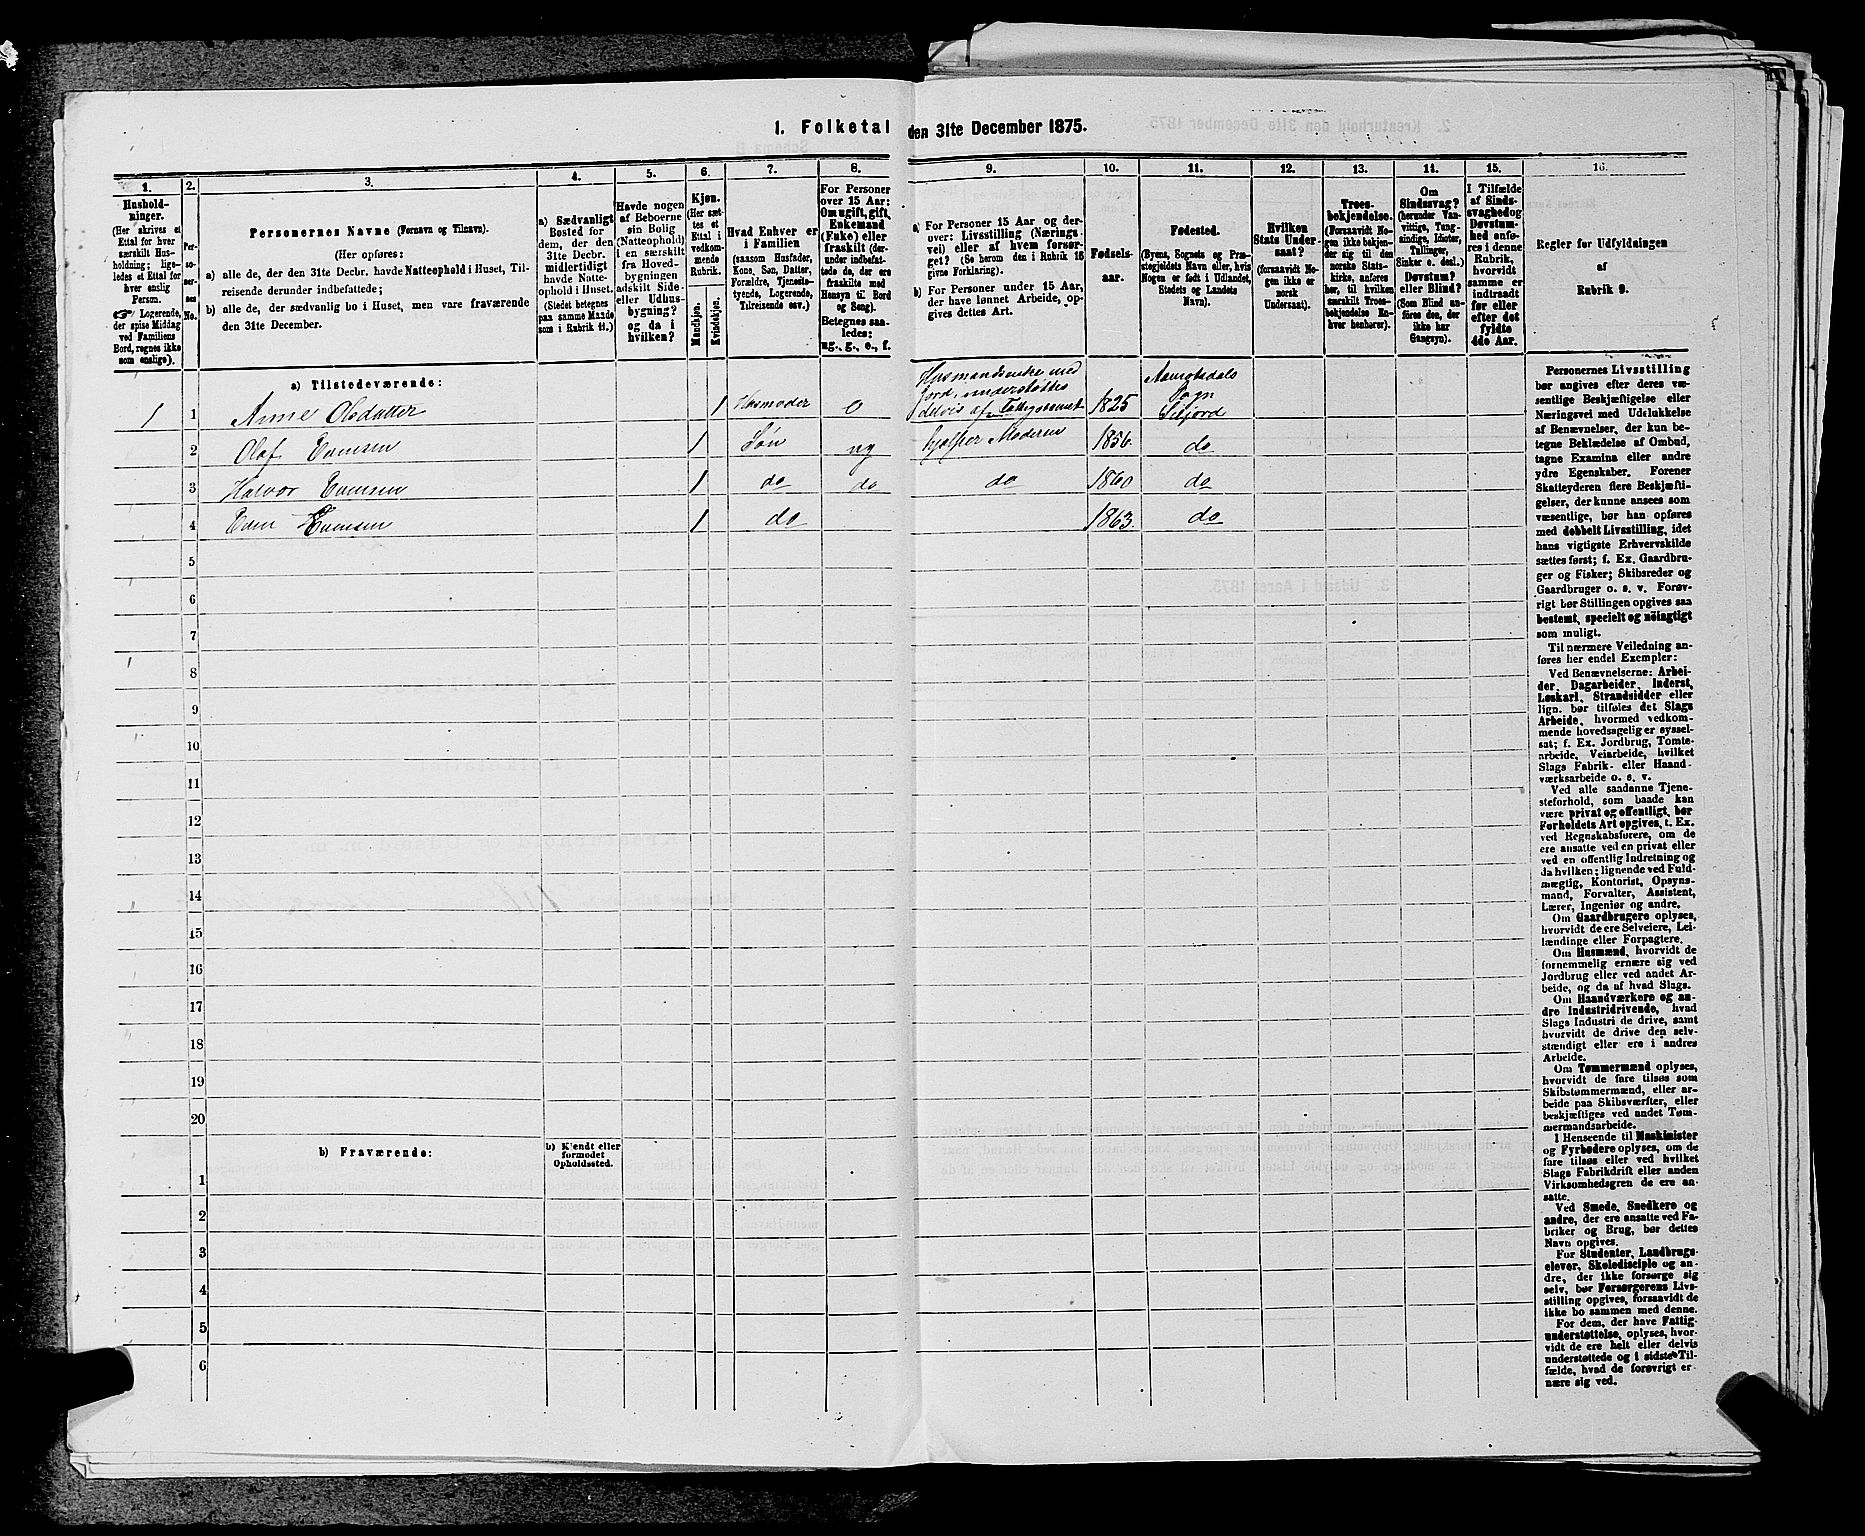 1. Folketal den 31te December 1875.
1.
2.
3.
4.
5.
6.
7.
8.
9.
10.
11.
12.
13.
14.
15.
16.
Hushold-
ninger.
(Her skrives et
Ettal for hver
særskilt Hus-
holdning; lige-
ledes et Ettal for
hver enslig
Person.
☞ Logerende,
der spise Middag
ved Familiens
Bord, regnes ikke
som enslige).
Per-
so-
ner-
nes
No.
Personernes Navne (Fornavn og Tilnavn).
(Her opføres:
a) alle de, der den 31te Decbr. havde Natteophold i Huset, Til-
reisende derunder indbefattede;
b) alle de, der sædvanlig bo i Huset, men vare fraværende
den 31te December.
a) Sædvanligt
Bosted for
dem, der den
31te Decbr.
midlertidigt
havde Natte-
ophold i Huset.
(Stedet betegnes
paa samme Maade
som i Rubrik 11.)
Havde nogen
af Beboerne
sin Bolig
(Natteophold)
i en særskilt
fra Hoved-
bygningen
adskilt Side-
eller Udhus-
bygning?
og da i
hvilken?
Kjøn.
(Her sæt-
tes et
Ettal i
vedkom-
mende
Rubrik.
Mandkjøn.
Kvindekjøn.
Hvad Enhver er
i Familien
(saasom Husfader,
Kone, Søn, Datter,
Forældre, Tjeneste-
tyende, Logerende,
Tilreisende osv.)
For Personer
over 15 Aar:
Om ugift, gift,
Enkemand
(Enke) eller
fraskilt (der-
under indbefat-
tede de, der ere
fraskilte med
Hensyn til Bord
og Seng).
Betegnes saa-
ledes:
ug., g., e., f.
a) For Personer 15 Aar og der-
over: Livsstilling (Nærings-
vei) eller af hvem forsør-
get? (Se herom den i Rubrik 16
givne Forklaring).
b) For Personer under 15 Aar,
der have lønnet Arbeide, op-
gives dettes Art.
Fødsels-
aar.
Fødested.
(Byens, Sognets og Præ-
stegjeldets Navn eller, hvis
Nogen er født i Udlandet,
Stedets og Landets
Navn).
Hvilken
Stats Under-
saat?
(forsaavidt No-
gen ikke er
norsk
Undersaat).
Troes-
bekjendelse.
(Forsaavidt No-
gen ikke bekjen-
der sig til den
norske Stats-
kirke, anføres
her, til hvilken
særskilt Troes-
bekjendelse En-
hver henhører).
Om
Sindssvag?
(herunder Van-
vittige, Tung-
sindige, Idioter,
Tullinger,
Sinker o. desl.)
Døvstum?
eller Blind?
(Som Blind an-
føres den, der
ikke har
Gangsyn).
I Tilfælde
af Sinds-
svaghed og
Døvstum-
hed anfø-
res i denne
Rubrik,
hvorvidt
samme er
indtraadt
før eller
efter det
fyldte
4de Aar.
Regler for Udfyldningen
af
Rubrik 9.
a) Tilstedeværende:
1 1 Anne Olsdatter 1 Husmoder e Husmandsenke med
Jord, understøttes
delvis af Fattigvæsenet 1825 Sogn
Seljord
2 Olaf 1 Søn ug hjelper Moderen 1856. do
3 Halvor 1 do do do 1860 do
4 1 do 1863. do
5
6
7
8
9
10
11
12
13
14
15
16
17
18
19
20
b) Fraværende:
b) Kjendt eller
formodet
Opholdssted.
1
2
3
4
5
6
Personernes Livsstilling
bør angives efter deres væ-
sentlige Beskjæftigelse eller
Næringsvei med Udelukkelse
af Benævnelser, der kun be-
tegne Beklædelse af Ombud,
tagne Examina eller andre
ydre Egenskaber. Forener
Skatteyderen flere Beskjæfti-
gelser, der kunne ansees som
væsentlige, bør han opføres
med dobbelt Livsstilling, idet
hans vigtigste Erhvervskilde
sættes først; f. Ex. Gaardbru-
ger og Fisker; Skibsreder og
Gaardbruger o. s. v. Forøv-
rigt bør Stillingen opgives saa
bestemt, specielt og nøiagtigt
som muligt.
Til nærmere Veiledning an-
føres her endel Exempler:
Ved Benævnelserne: Arbei-
der, Dagarbeider, Inderst,
Løskarl, Strandsidder eller
lign. bør tilføies det Slags
Arbeide, hvormed vedkom-
mende hovedsagelig er syssel-
sat; f. Ex. Jordbrug, Tomte-
arbeide, Veiarbeide, hvilket
Slags Fabrik- eller Haand-
værksarbeide o. s. v.
Ved alle saadanne Tjene-
steforhold, som baade kan
være privat og offentligt, bør
Forholdets Art opgives, t. Ex.
ved Regnskabsførere, om de
ere ansatte ved en privat eller
ved en offentlig Indretning og
da hvilken; lignende ved Fuld-
mægtig, Kontorist, Opsyns-
mand, Forvalter, Assistent,
Lærer, Ingeniør og andre.
Om Gaardbrugere oplyses,
hvorvidt de ere Selveiere, Lei-
lændinge eller Forpagtere.
Om Husmænd, hvorvidt de
fornemmelig ernære sig ved
Jordbrug eller ved andet Ar-
beide, og da af hvad Slags.
Om Haandværkere og an-
dre Industridrivende, hvad
Slags Industri de drive, samt
hvorvidt de drive den selv-
stændigt eller ere i andres
Arbeide.
Om Tømmermænd oplyses,
hvorvidt de fare tilsøs som
Skibstømmermænd, eller ar-
beide paa Skibsværfter, eller
beskjæftiges ved andet Tøm-
mermandsarbeide.
I Henseende til Maskinister
og Fyrbødere oplyses, om de
fare tilsøs eller ved hvilket
Slags Fabrikdrift eller anden
Virksomhedsgren de ere an-
satte.
Ved Smede, Snedkere og
andre, der ere ansatte ved Fa-
briker og Brug, bør dettes
Navn opgives.
For Studenter, Landbrugs-
elever, Skoledisciple og an-
dre, der ikke forsørge sig
selv, bør Forsørgerens Livs-
stilling opgives, forsaavidt de
ikke bo sammen med denne.
For dem, der have Fattig-
understøttelse, oplyses, hvor-
vidt de ere helt eller delvis
understøttede og i sidste Til-
fælde, hvad de forøvrigt er-
nære sig ved.